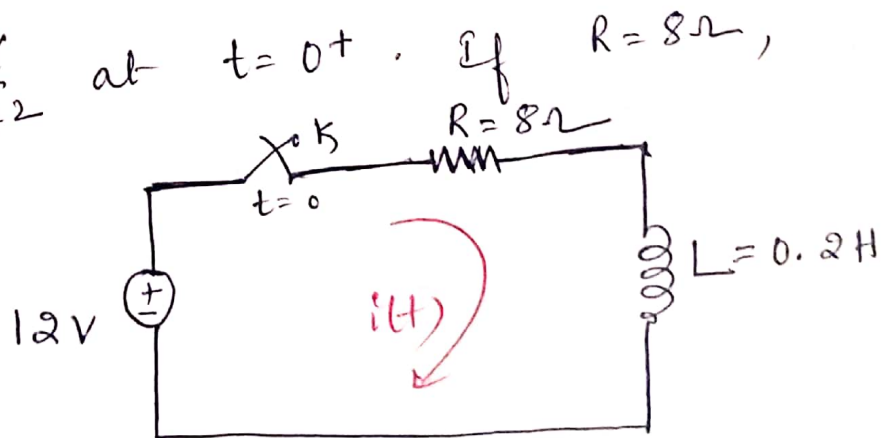 2 at t = 0+ . If R = 8Ω,
K
R = 8Ω
t = 0
L = 0.2H
12V
+
-
i(t)